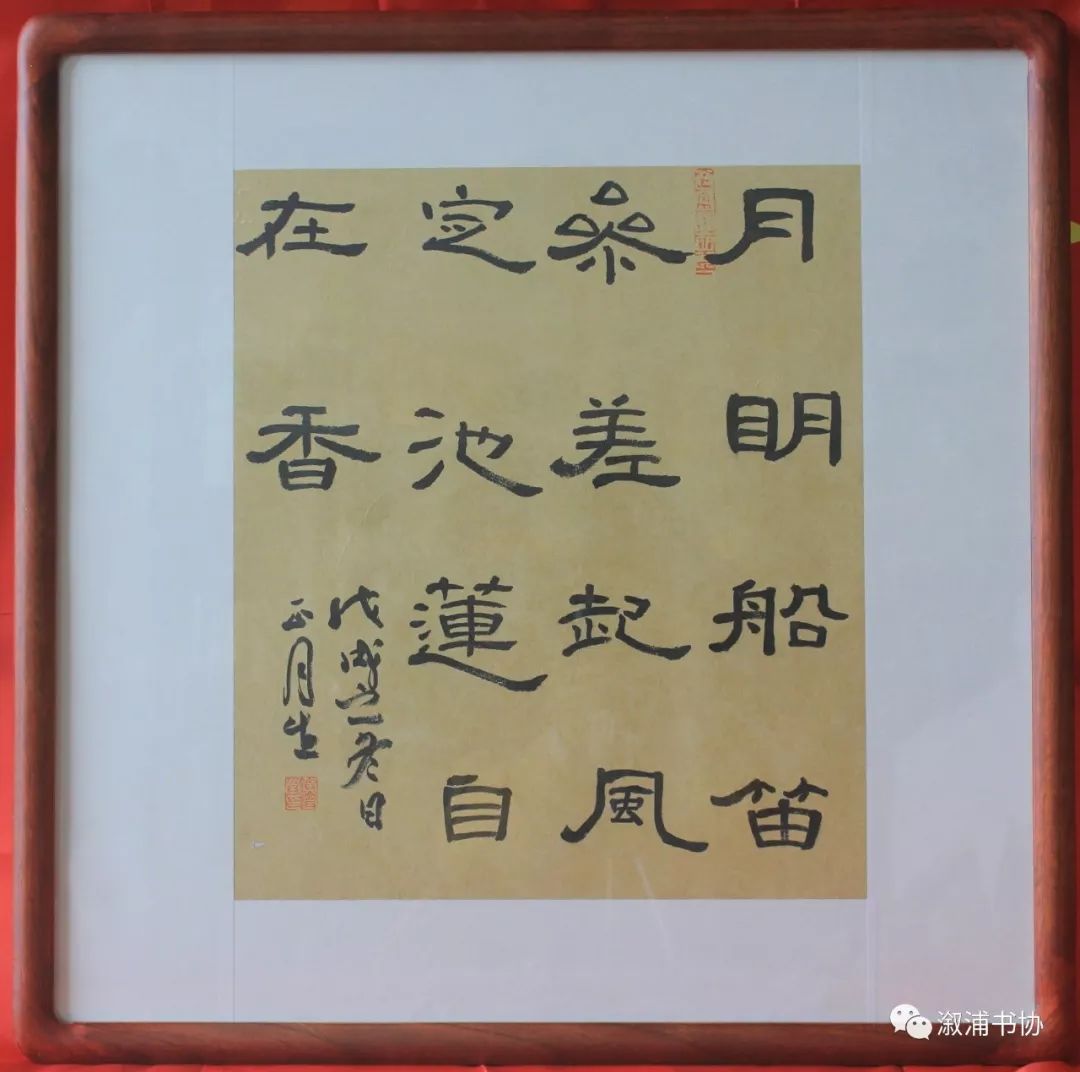 月明船笛
參差起風
定池蓮自
在香
戊戌立冬日
正月生
溆浦书协